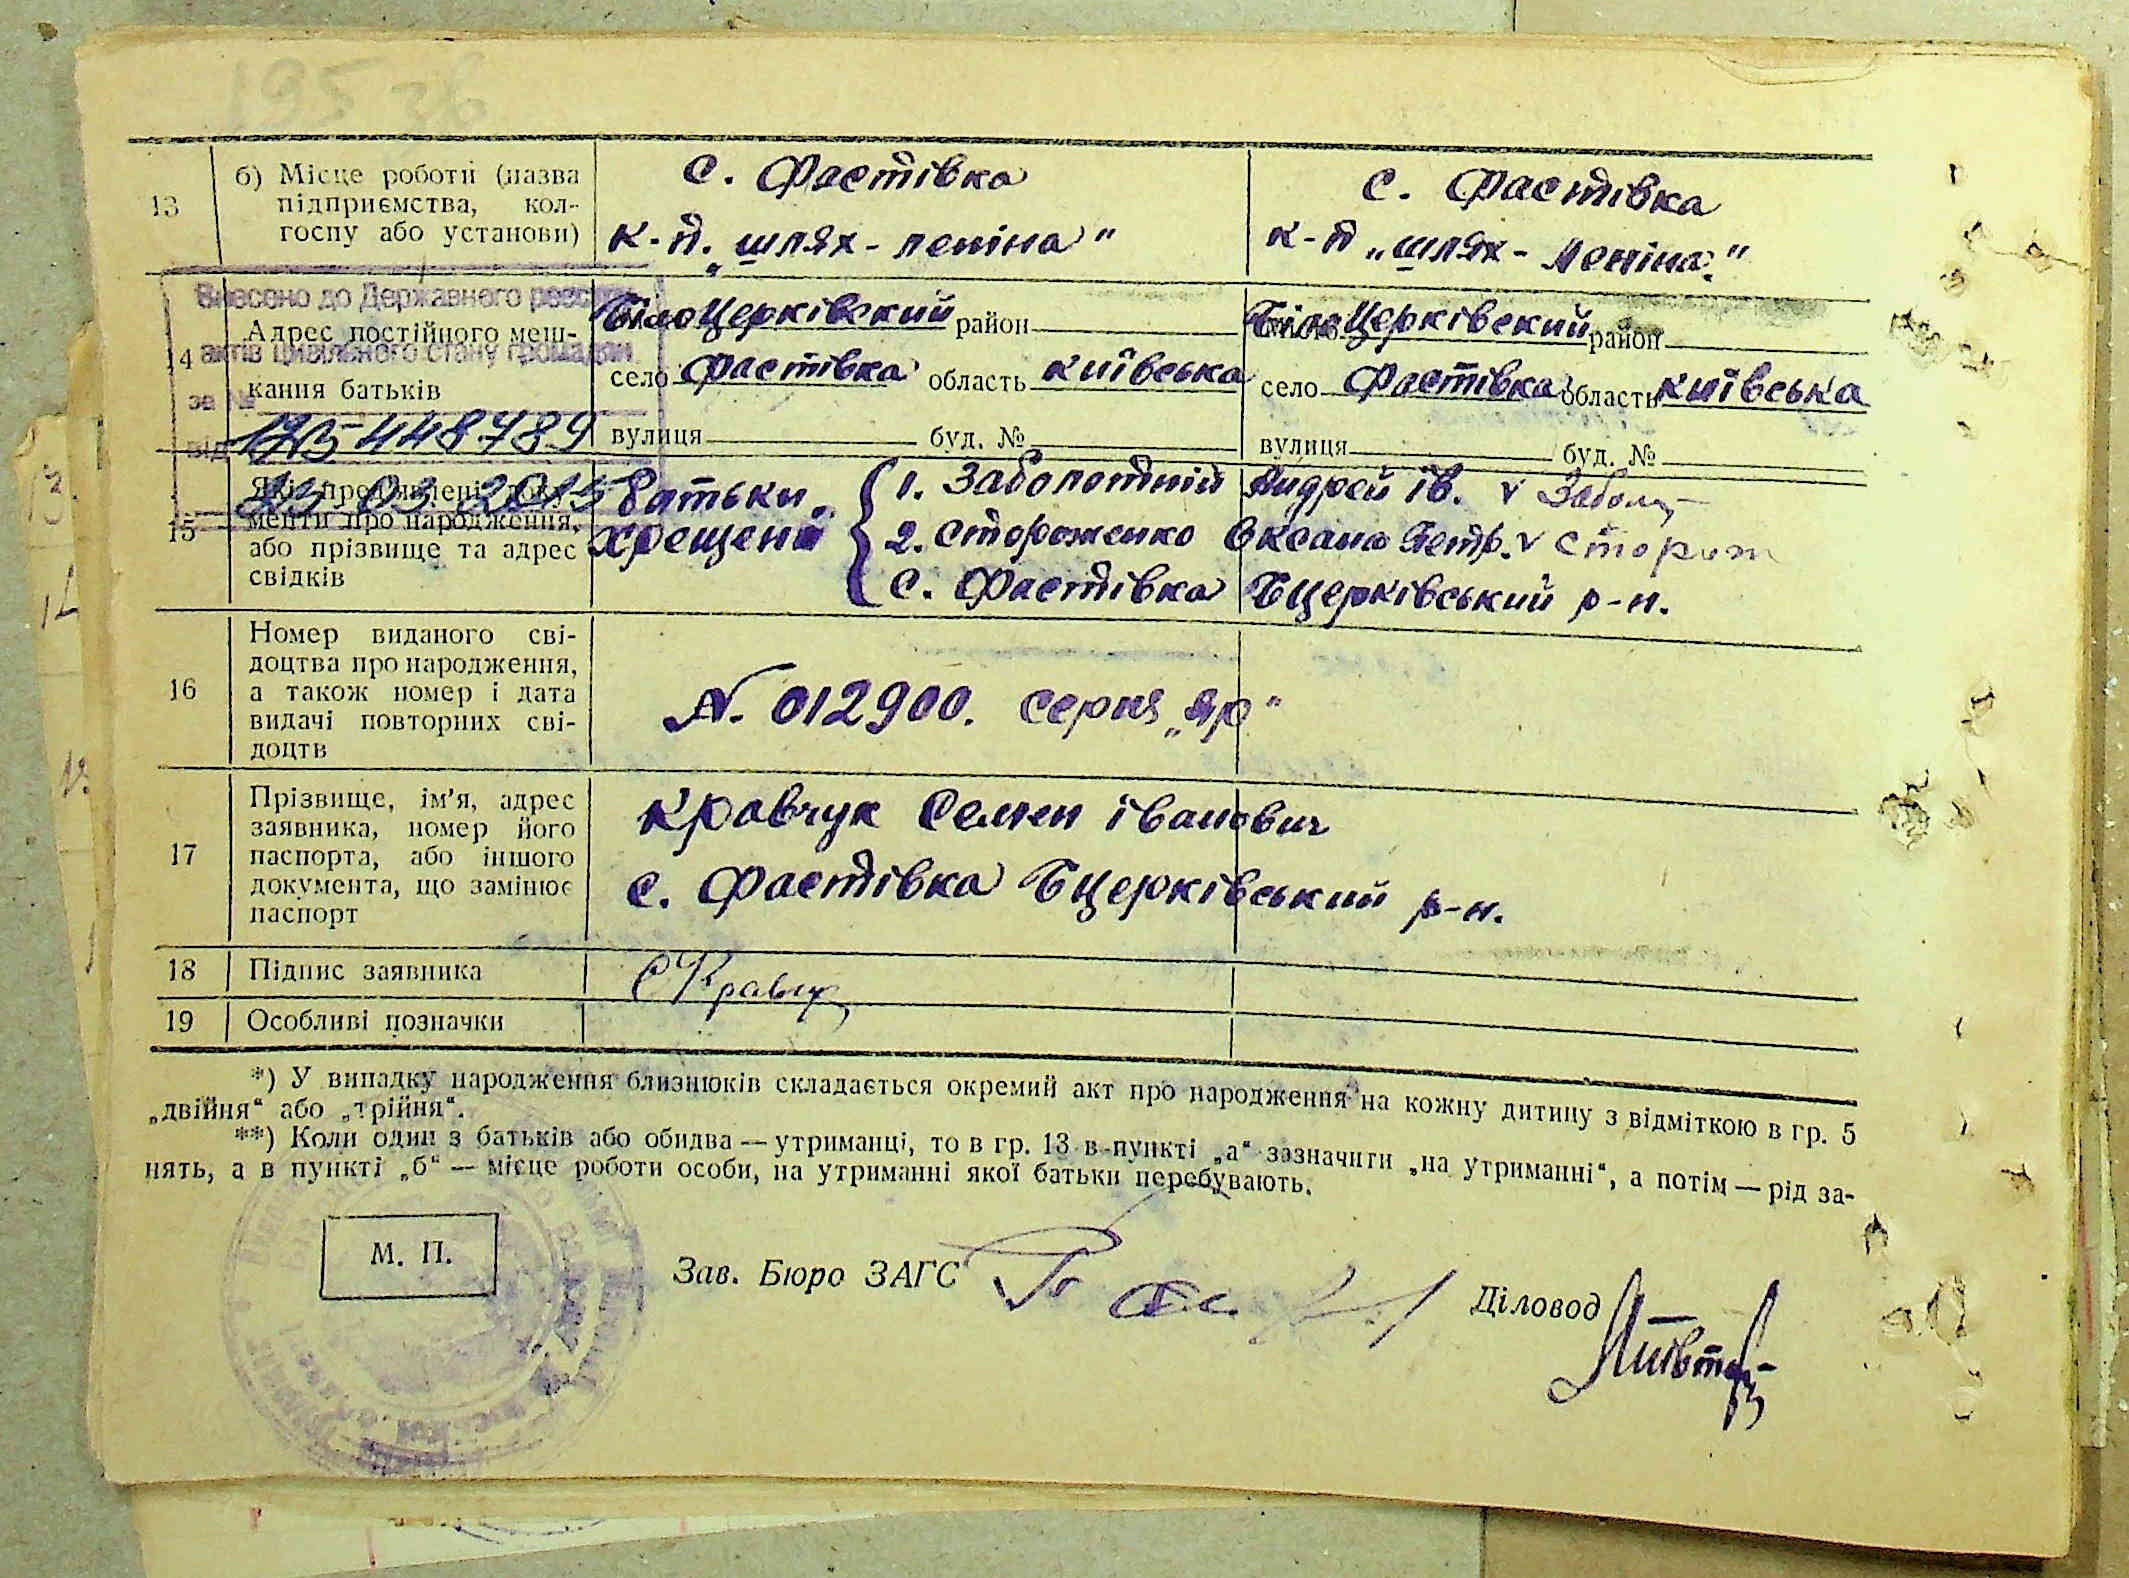 195 38
13
б) Місце роботи (назва
підприємства, кол-
госпу або установи)
с. Фастівка
к-п. „шлях-леніна"
с. Фастівка
к-п „шлях-Леніна."
Внесено до Державного реєстру
актів цивільного стану громадян
за №
125448789
від 23 03 2015
14
Адрес постійного меш-
кания батьків
БілоЦерківский район
село Фастівка область київська
вулиця буд. №
БілоЦерківский район
село Фастівка область київська
вулиця буд. №
15
Які пред'явлені доку-
менти про народження,
або прізвище та адрес
свідків
Батьки
хрещені
1. Заболотній Андрей ів. v Забол
2. Стороженко Оксана Петр. v Сторож
с. Фастівка Бцерківський р-н.
16
Номер виданого сві-
доцтва про народження,
а також номер і дата
видачі повторних сві-
доцтв
N. 012900. серия „ЯР"
17
Прізвище, ім'я, адрес
заявника, номер його
паспорта, або іншого
документа, що замінює
паспорт
Кравчук Семен іванович
с. Фастівка Бцерківський р-н.
18
Підпис заявника
СКравчу
19
Особливі позначки
*) У випадку народження близнюків складається окремий акт про народження на кожну дитину з відміткою в гр. 5
„двійня“ або „трійня“.
**) Коли один з батьків або обидва — утриманці, то в гр. 13 в пункті „а“ зазначити „на утриманні“, а потім — рід за-
нять, а в пункті „б“ — місце роботи особи, на утриманні якої батьки перебувають.
М. П.
Зав. Бюро ЗАГС
Діловод